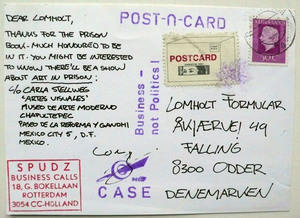 DEAR LOMHOLT,
THANKS FOR THE PRISON
BOOK. MUCH HONOURED TO BE
IN IT. YOU MIGHT BE INTERESTED
TO KNOW THERE'LL BE A SHOW
ABOUT ART IN PRISON:
c/o CARLA STELLWEG
"ARTES VISUALES"
MUSEO DE ARTE MODERNO
CHAPULTEPEC
PASEO DE LA REFORMA Y GANDHI
MEXICO CITY 5, D.F.
MEXICO.
SPUDZ
BUSINESS CALLS
18, G. BOKELLAAN
ROTTERDAM
3054 CC-HOLLAND
POST-N-CARD
Business -
not Politics!
POSTCARD
CASE
LOMHOLT FORMULAR
ÅKJÆRVEJ 49
FALLING
8300 ODDER
DENEMARKEN